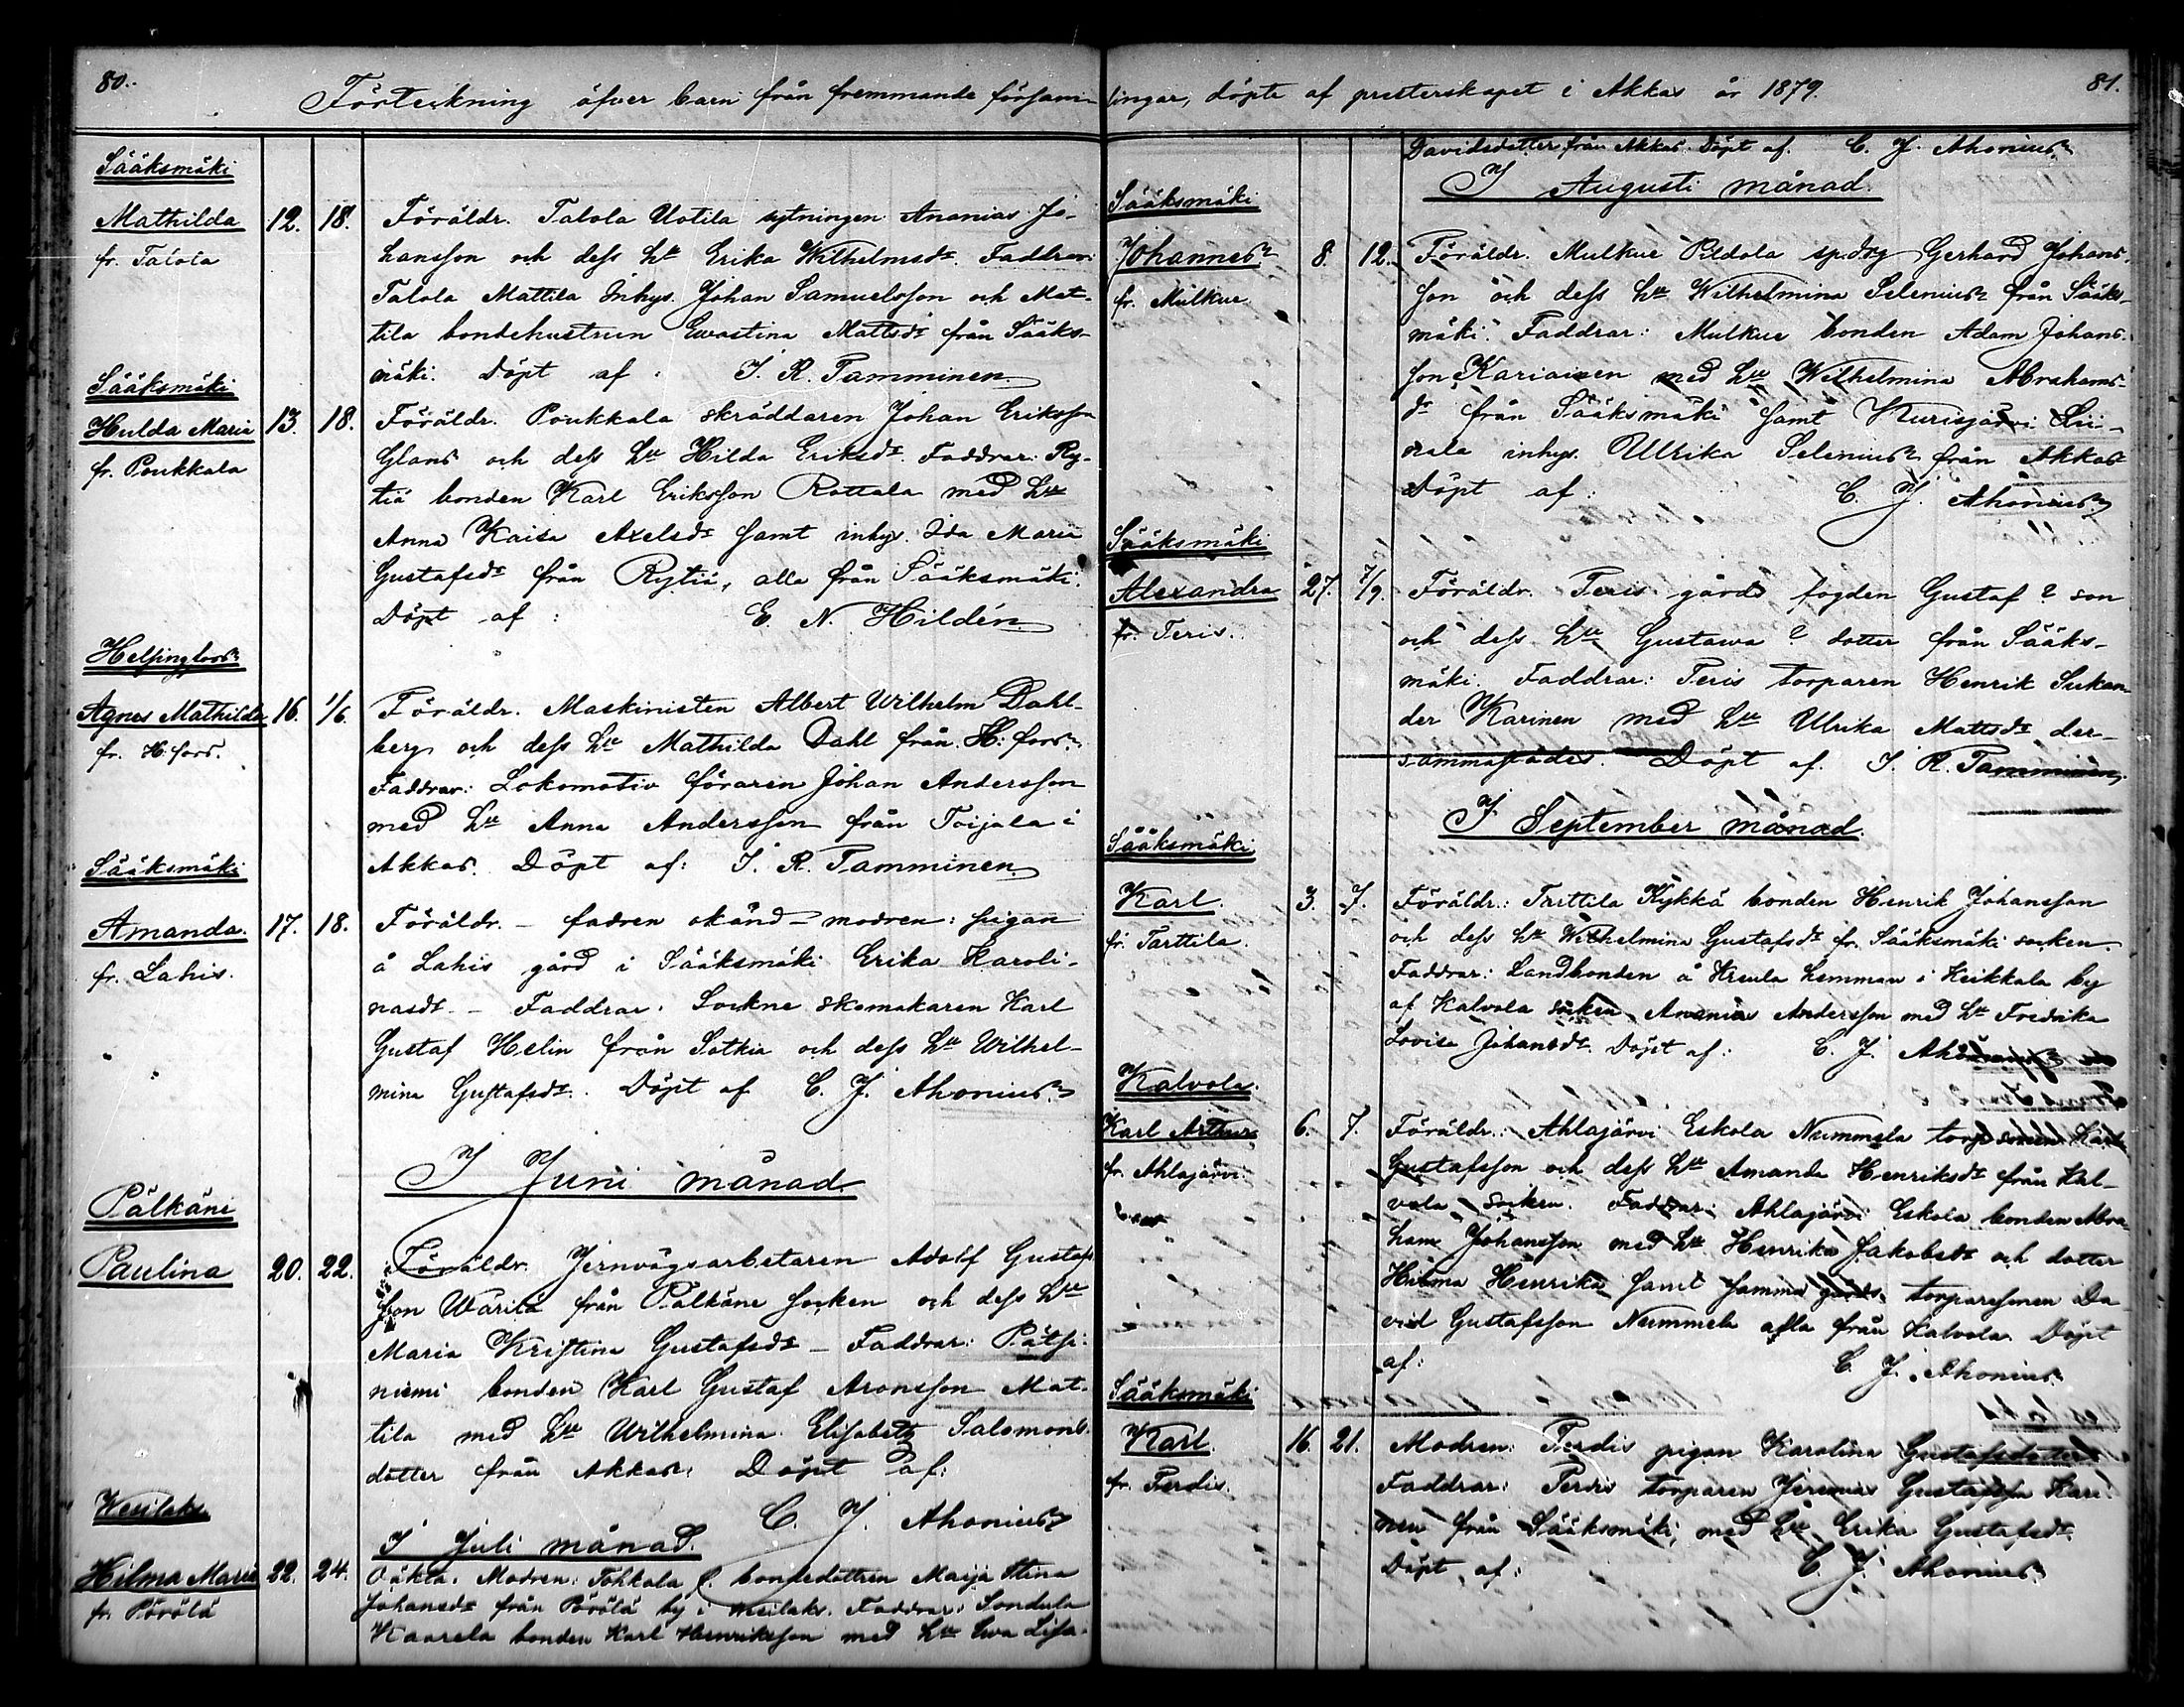 80.
Förteckning öfver barn från fremmande försam-
Sääksmäki
Mathilda 12. 18. Föräldr. Talola Uotila sytningen Ananias Jo-
fr. Talola hansson och dess hu Erika Wilhelmsdr. Faddrar:
Talola Mattila Inhys. Johan Samuelsson och Mat-
tila bondehustrun Ewastina Mattsdr från Sääks-
mäki. Döpt af: J. R. Tamminen
Sääksmäki
Hulda Maria 13. 18. Föräldr. Poukkala skräddaren Johan Eriksson
fr. Poukkala Glans och dess hu Hilda Eriksdr. Faddrar: Ry-
tiä bonden Karl Eriksson Rottala med hu
Anna Kaisa Axelsdr samt inhys. Ida Maria
Gustafsdr från Rytiä, alla från Sääksmäki.
Döpt af: E. N. Hildén
Helsingfors
Agnes Mathilda 16. 1/6. Föräldr. Maskinisten Albert Wilhelm Dahl-
fr. H:fors. berg och dess hu Mathilda Dahl från H:fors.
Faddrar: Lokomotiv föraren Johan Andersson
med hu Anna Andersson från Toijala i
Akkas. Döpt af: J. R. Tamminen
Sääksmäki
Amanda. 17. 18. Föräldr. – fadren okänd – modren: pigan
fr. Lahis. å Lahis gård i Sääksmäki Erika Karoli-
nasdr. – Faddrar: Sockne skomakaren Karl
Gustaf Helin från Sotkia och dess hu Wilhel-
mina Gustafsdr. Döpt af C. J. Ahonius
I Juni månad
Pälkäni
Paulina 20. 22. Föräldr. Jernvägsarbetaren Adolf Gustafs
son Warila från Pälkäne socken och dess hu
Maria Kristina Gustafsdr – Faddrar: Pätsi-
niemi bonden Karl Gustaf Aronsson Mat-
tila med hu Wilhelmina Elisabeth Salomons-
dotter från Akkas. Döpt af:
C. J. Ahonius
Wesilaks
I Juli månad.
Hilma Maria 22. 24. Oäkta. Modren: Tohkala bondedottren Maija Stina
fr. Pörölä Johansdr från Pörölä by i Wesilaks. Faddrar: Sondula
Kaarela bonden Karl Henriksson med hu Ewa Lisa-
81.
lingar, döpte af presterskapet i Akkas år 1879.
Davidsdotter från Akkas. Döpt af. C. J. Ahonius
I Augusti månad.
Sääksmäki
Johannes 8. 12. Föräldr. Mulkue Gerhard Johans-
fr. Mulkue. son och dess hu Wilhelmina Selenius från Sääks-
mäki. Faddrar: Mulkue bonden Adam Johans-
son Kariainen med hu Wilhelmina Abrahams-
dr från Sääksmäki samt Kurisjärvi Lii-
nala inhys. Ullrika Selenius från Akkas
Döpt af: C. J. Ahonius
Sääksmäki
Alexandra 27. 7/9. Föräldr. Teris gårds fogden Gustaf ? son
fr. Teris. och dess hu Gustawa ? dotter från Sääks-
mäki. Faddrar: Teris torparen Henrik Sukan-
der Karinen med hu Ulrika Mattsdr der-
sammastädes. Döpt af. J. R. Tamminen
I September månad.
Sääksmäki
Karl. 3. 7. Föräldr.: Tarttila Kykkä bonden Henrik Johansson
fr. Tarttila. och dess hu Wilhelmina Gustafsdr fr. Sääksmäki socken.
Faddrar: Landbonden å hemman i Keikkala by
af Kalvola socken Ananias Andersson med hu Fredrika
Lovisa Johansdr. Döpt af: C. J. Ahonius
Kalvola.
Karl Arthur 6. 7. Föräldr.: Ahlajärvi Eskola Nummela torp sonen Karl
fr. Ahlajärvi. Gustafsson och dess hu Amanda Henriksdr från Kal-
vola socken. Faddrar: Ahlajärvi Eskola bonden Abra-
ham Johansson med hu Henrika Jakobsdr och dotter
Hilma Henrika samt samma gårds torparesonen Da
vid Gustafsson Nummela alla från Kalvola. Döpt
af: C. J. Ahonius
Sääksmäki
Karl. 16. 21. Modren: Terdis pigan Karolina Gustafsdotter
fr. Terdis. Faddrar: Terdis torparen Jeremias Gustafsson Kari-
nen från Sääksmäki med hu Erika Gustafsdr
Döpt af: C. J. Ahonius